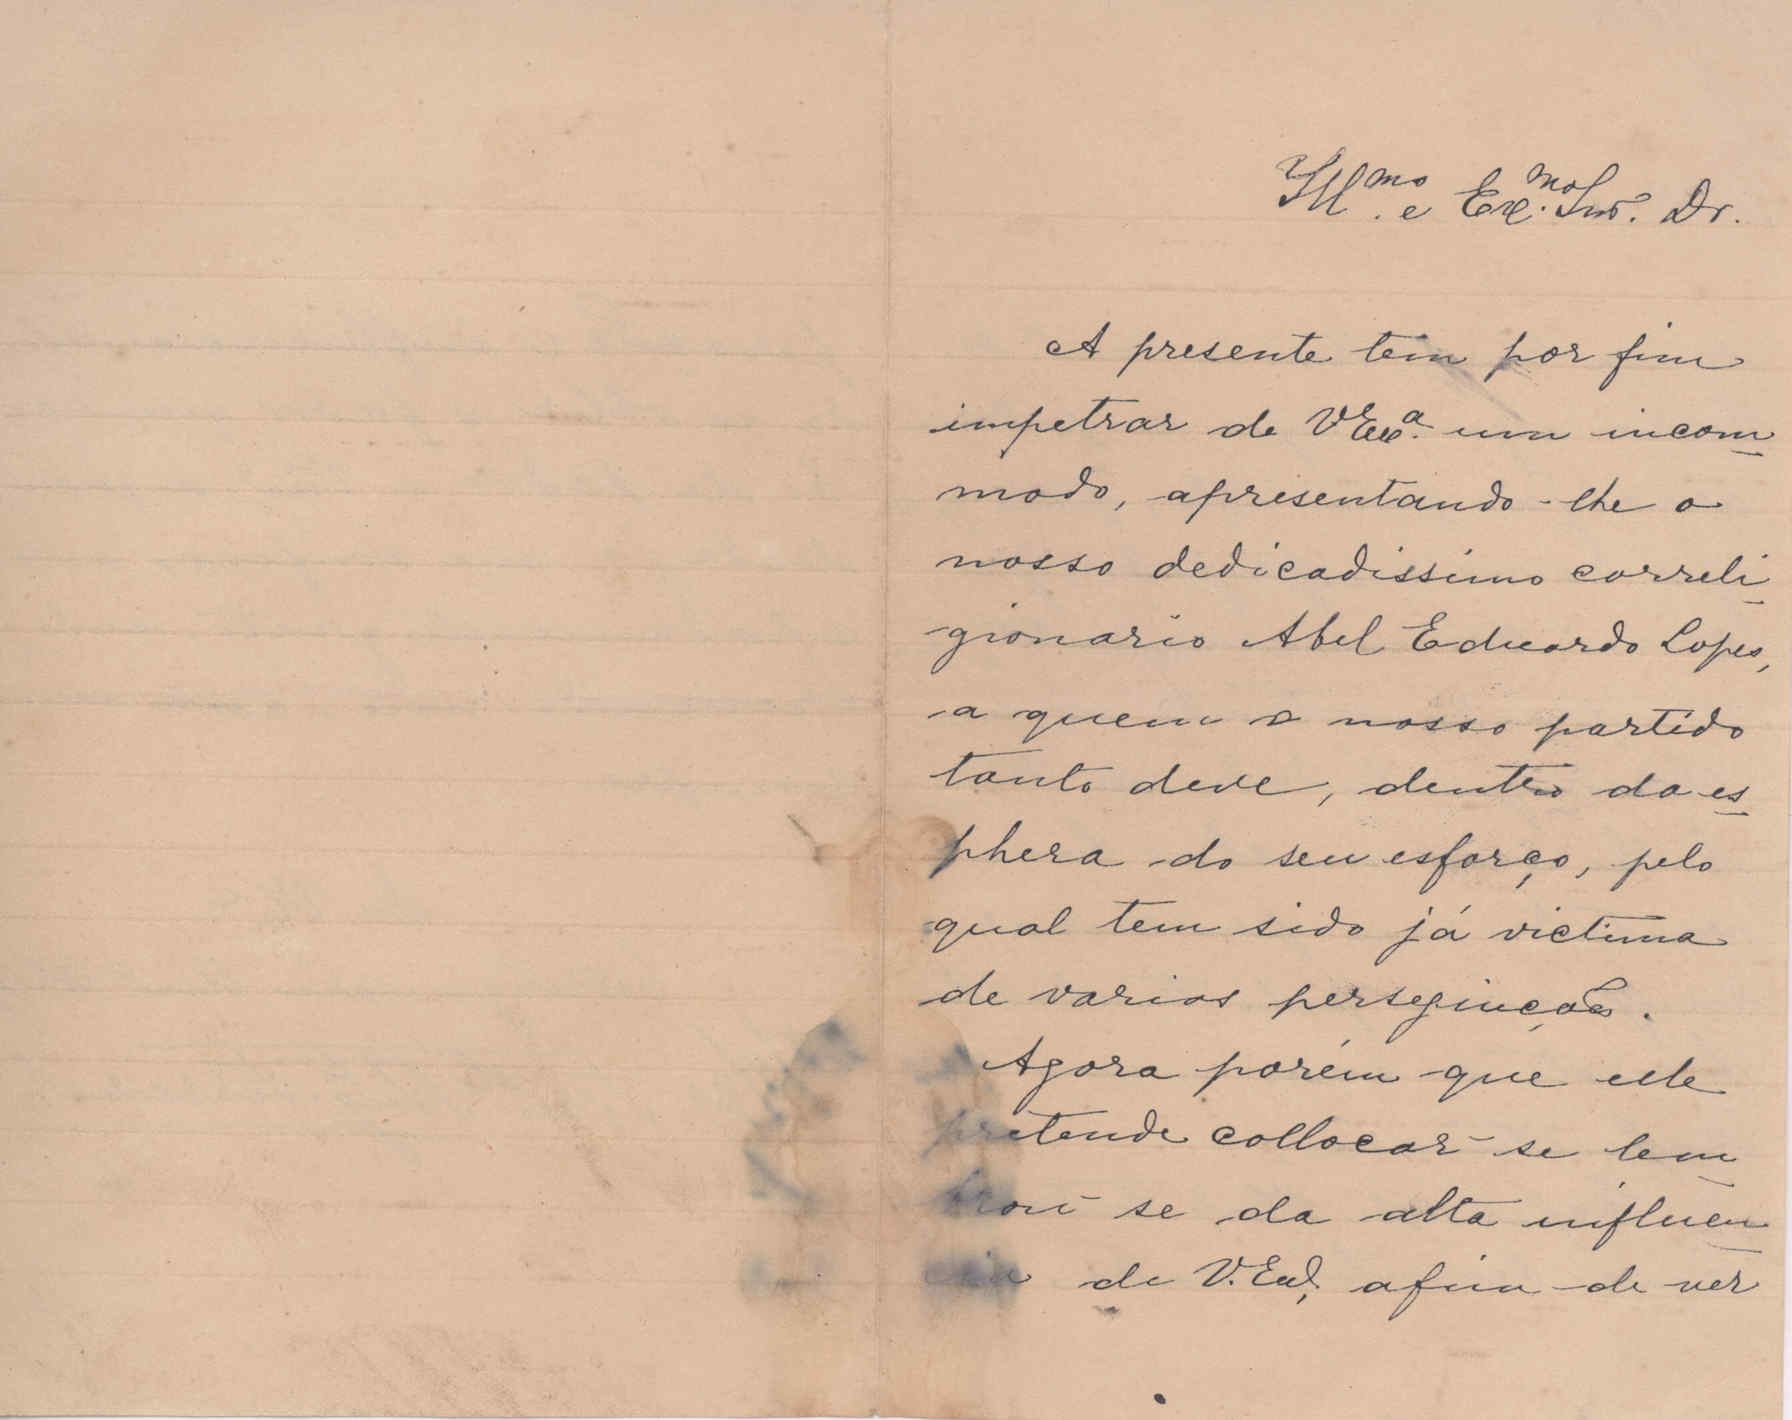 Ill.mo e Ex.mo Snr. Dr.
A presente tem por fim
impetrar de V.Ex.a um incom
modo, apresentando-lhe o
nosso dedicadissimo correli
gionario Abel Eduardo Lopes,
a quem o nosso partido
tanto deve, dentro da es
phera do seu esforço, pelo
qual tem sido já victima
de varias perseguições.
Agora porém que elle
pretende collocar-se lem
brou-se da alta influen
cia de V.Ex.a, afim de ver